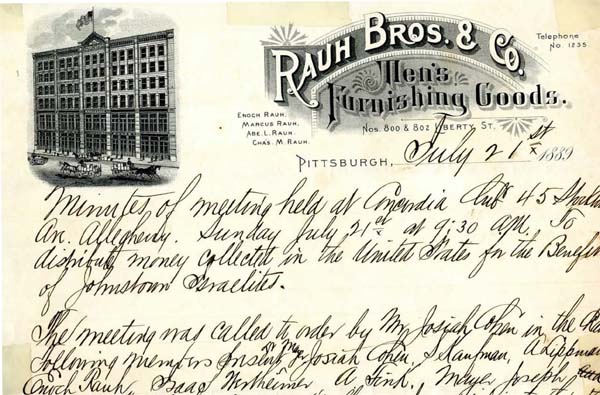 RAUH BROS. & CO.
Men's
Furnishing Goods.
Telephone
No. 1235
ENOCH RAUH.
MARCUS RAUH.
ABE. L. RAUH.
CHAS. M. RAUH.
NOS. 800 & 802 LIBERTY, ST.
PITTSBURGH, July 21st 1889
Minutes of meeting held at Concordia Club 45 Stockton
Av. Allegheny. Sunday July 21st at 9:30 AM. To
distribute money collected in the United States for the Benefit
of Johnstown Israelites.
The meeting was called to order by Mr Josiah Cohen in the
following members present Josiah Cohen, S Kaufman, A Lippman
Enoch Rauh, Isaac Wertheimer A. Fink, Mayer Joseph